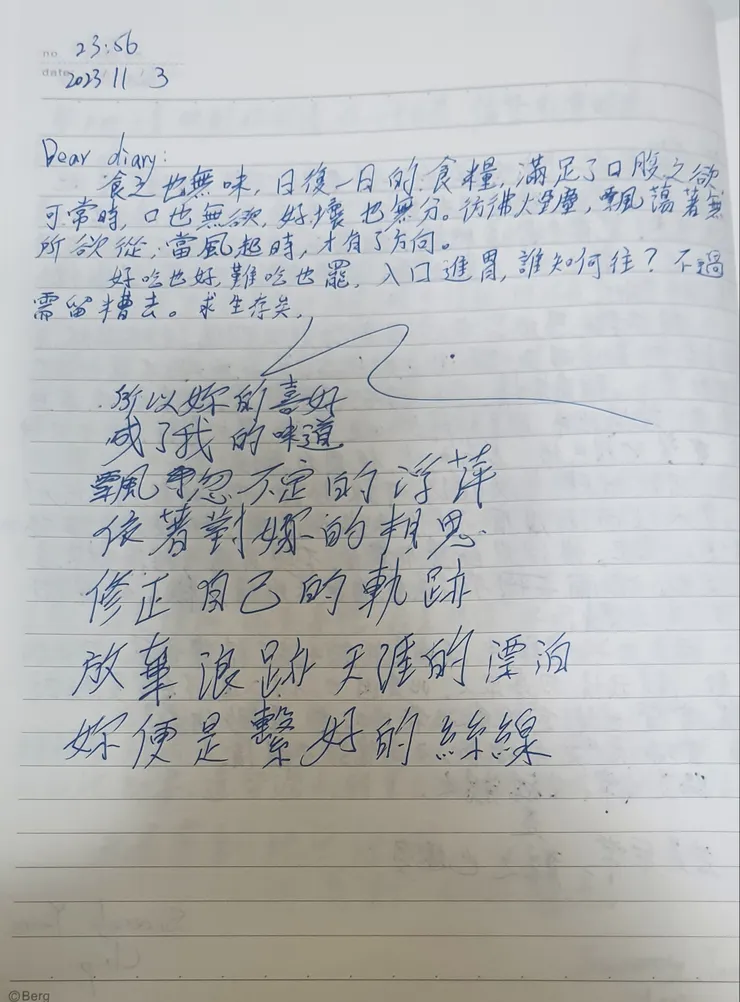 no 23:56
date 2023 11 3
Dear diary:
食之也無味,日復一日的食糧,滿足了口腹之欲
可常時,口也無欲,好壞也無分。彷彿大塵,飄蕩著無
所欲從,當風起時,才有了方向。
好吃也好,難吃也罷,入口進胃,誰知何往?不過
需留糟去。求生存矣,
所以妳的喜好
成了我的味道
飄忽不定的浮萍
依著對妳的相思
修正自己的軌跡
放棄浪跡天涯的漂泊
妳便是繫好的絲線
©Berg